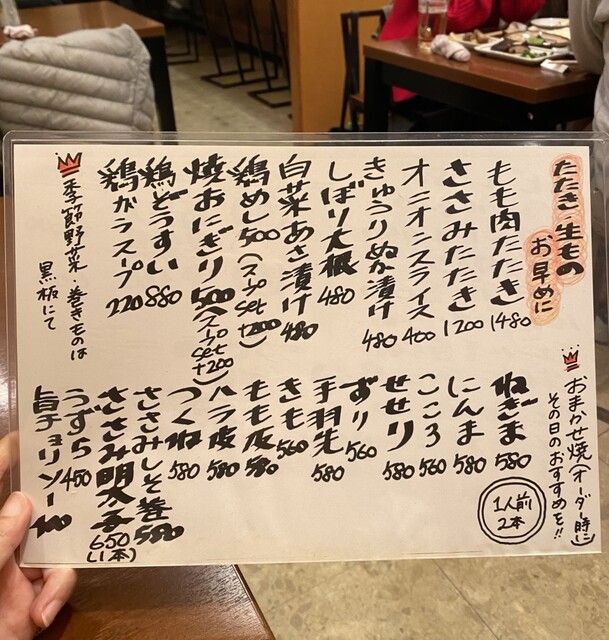 たたき・生もの
お早めに
もも肉たたき 1480
ささみたたき 1200
オニオンスライス 400
きゅうりぬか漬け 480
しぼり大根 480
白菜あさ漬け 480
鶏めし 500 (スープset +200)
焼おにぎり 500 (スープset +200)
鶏ぞうすい 880
鶏ガラスープ 220
季節野菜・巻きものは
黒板にて
おまかせ焼(オーダー時に)
その日のおすすめを!!
1人前
2本
ねぎま 580
にんま 580
こころ 560
せせり 580
ずり 560
手羽先 580
きも 560
もも皮 580
ハラ皮 580
つくね 580
ささみしそ巻 580
ささみ明太子 650 (1本)
うずら 450
旨チョリソー